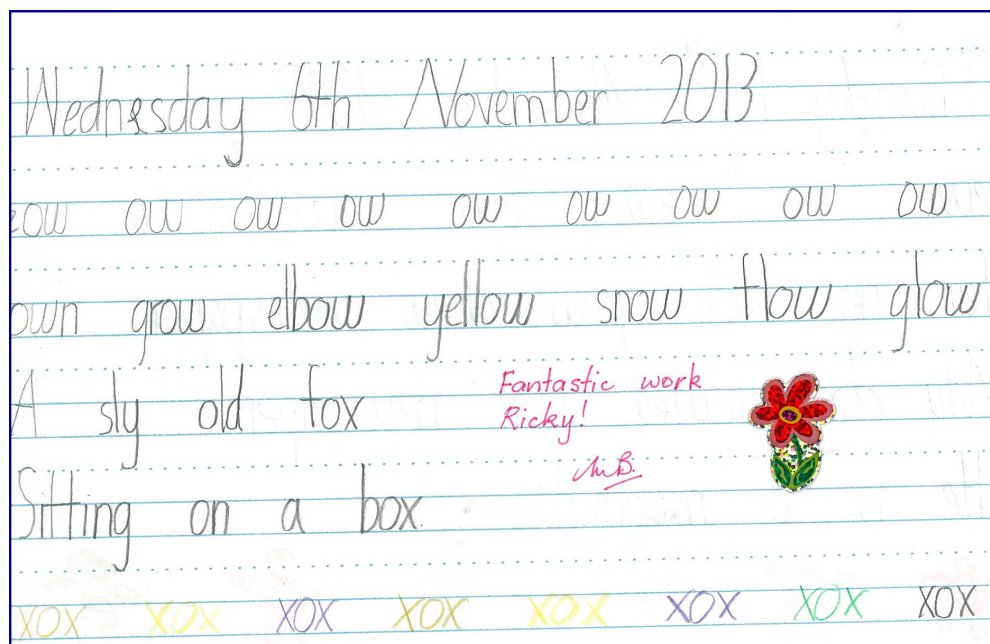 Wednesday 6th November 2013
ow ow ow ow ow ow ow ow ow
own grow elbow yellow snow flow glow
A sly old fox
Fantastic work
Ricky!
Sitting on a box.
xox xox xox xox xox xox xox xox